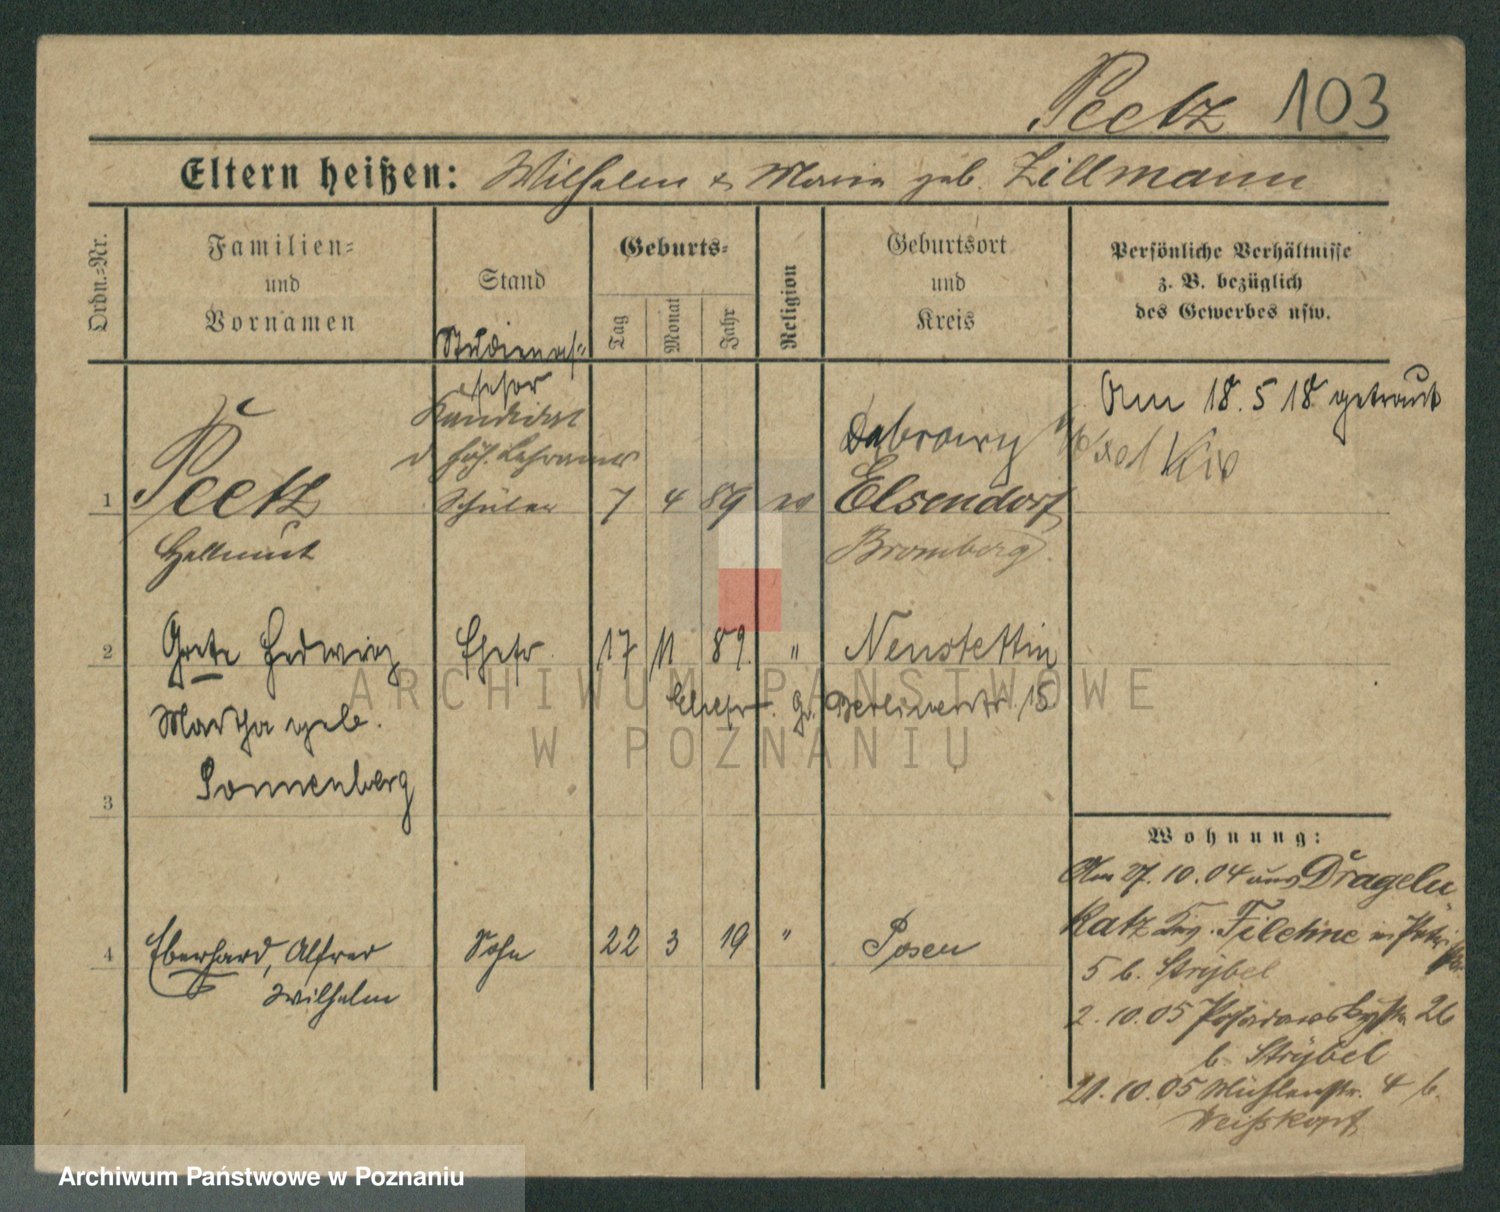 Peetz 103
Eltern heißen: Wilhelm & Maria geb. Zillmann
Ordn.-Nr.
Familien-
und
Vornamen
Stand
Geburts-
Tag
Monat
Jahr
Religion
Geburtsort
und
Kreis
Persönliche Verhältnisse
z. B. bezüglich
des Gewerbes usw.
Studienas-
sessor
Kandidat
d höh. Lehramts
Am 18. 5 18 getraut
1 Peetz Schüler 7 4 89 Elsendorf
Dabrowy
Hellmut
Bromberg
2 Grete Hedwig Ehefr. 17 11 89. " Neustettin
Martha geb.
Sonnenberg
Ehefr. Berlinerstr. 15
3
4 Eberhard, Alfred Sohn 22 3 19 " Posen
Wilhelm
Wohnung:
Am 27. 10. 04 aus Drageku
Katz Filehne
5 b. Strybel
2. 10. 05 26
b. Strybel
21. 10. 05 Mühlenstr. 4 b.
Weißkopf
ARCHIWUM PAŃSTWOWE
W POZNANIU
Archiwum Państwowe w Poznaniu